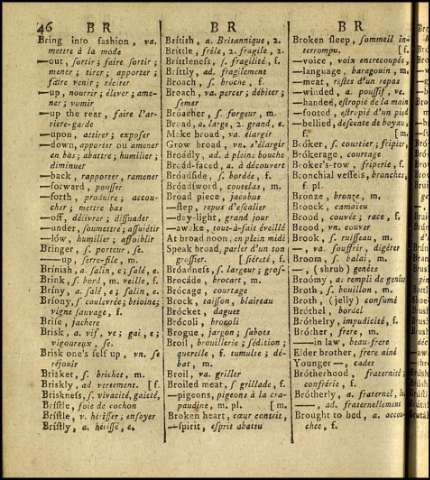 46 B R
B R
B R
Bring into fashion, va.
mettre à la mode
—out, sortir; faire sortir;
mener; tirer; apporter;
faire venir; réciter
—up, nourrir; élever; ame-
ner; vomir
—up the rear, faire l'ar-
riere-garde
—upon, attirer; exposer
—down, apporter ou amener
en bas; abattre; humilier;
diminuer
—back, rapporter, ramener
—forward, pousser
—forth, produire; accou-
cher; mettre bas
—off, délivrer; dissuader
—under, soumettre; assujétir
—low, humilier; affoiblir
Bringer, s. porteur, se.
—up, serre-file, m.
Brinish, a. salin, e; salé, e.
Brink, s. bord, m. veille, f.
Briny, a. salé, e; salin, e.
Briony, s. couleurée; brioine;
vigne sauvage, f.
Brise, jachere
Brisk, a. vif, ve; gai, e;
vigoureux, se.
Brisk one's self up, vn. se
réjouir
Brisket, s. brichet, m.
Briskly, ad. vertement. [f.
Briskness, s. vivacité, gaieté,
Bristle, soie de cochon
Bristle, v. hérisser; ensoyer
Bristly, a. hérissé, e.
British, a. Britannique, 2.
Brittle, frêle, 2. fragile, 2.
Brittleness, s. fragilité, f.
Brittly, ad. fragilement
Broach, s. broche, f.
Broach, va. percer; débiter;
semer
Broacher, s. forgeur, m.
Broad, a. large, 2. grand, e.
Make broad, va. élargir
Grow broad, vn. s'élargir
Broadly, ad. à pleine bouche
Broad-faced, a. à découvert
Broadside, s. bordée, f.
Broadsword, coutelas, m.
Broad piece, jacobus
—step, repos d'escalier
—day-light, grand jour
—awake, tout-à-fait éveillé
At broad noon, en plein midi
Speak broad, parler d'un ton
grossier. [siéreté, f.
Broadness, s. largeur; gros-
Brocade, brocart, m.
Broccage, courtage
Brock, taisson, blaireau
Brocket, daguet
Brocoli, brocoli
Brogue, jargon; sabots
Broil, brouillerie; sédition;
querelle, f. tumulte; dé-
bat, m.
Broil, va. griller
Broiled meat, s. grillade, f.
—pigeons, pigeons à la cra-
paudine, m. pl. [m.
Broken heart, cœur contrit,
—spirit, esprit abattu
Broken sleep, sommeil in-
terrompu. [f.
—voice, voix entrecoupée,
—language, baragouin, m.
—meat, restes d'un repas
—winded, a. poussif, ve.
—handed, estropié de la main
—footed, estropié d'un pied
—bellied, descente de boyau,
f.
Broker, s. courtier; fripier,
Brokerage, courtage
Broker's-row, friperie, f.
Bronchial vessels, bronches,
f. pl.
Bronze, bronze, m.
Broock, camaïeu
Brood, couvée; race, f.
Brood, vn. couver
Brook, s. ruisseau, m.
—, va. souffrir, digérer
Broom, s. balai, m.
—, (shrub) genêt
Broomy, a. rempli de genêts
Broth, s. bouillon, m.
Broth, (jelly) consumé
Brothel, bordel
Brothelry, impudicité, f.
Brother, frere, m.
—in law, beau-frere
Elder brother, frere aîné
Younger —, cadet
Brotherhood, fraternité;
confrérie, f.
Brotherly, a. fraternel,
—, ad. fraternellement
Brought to bed, a. accou-
chée, f.